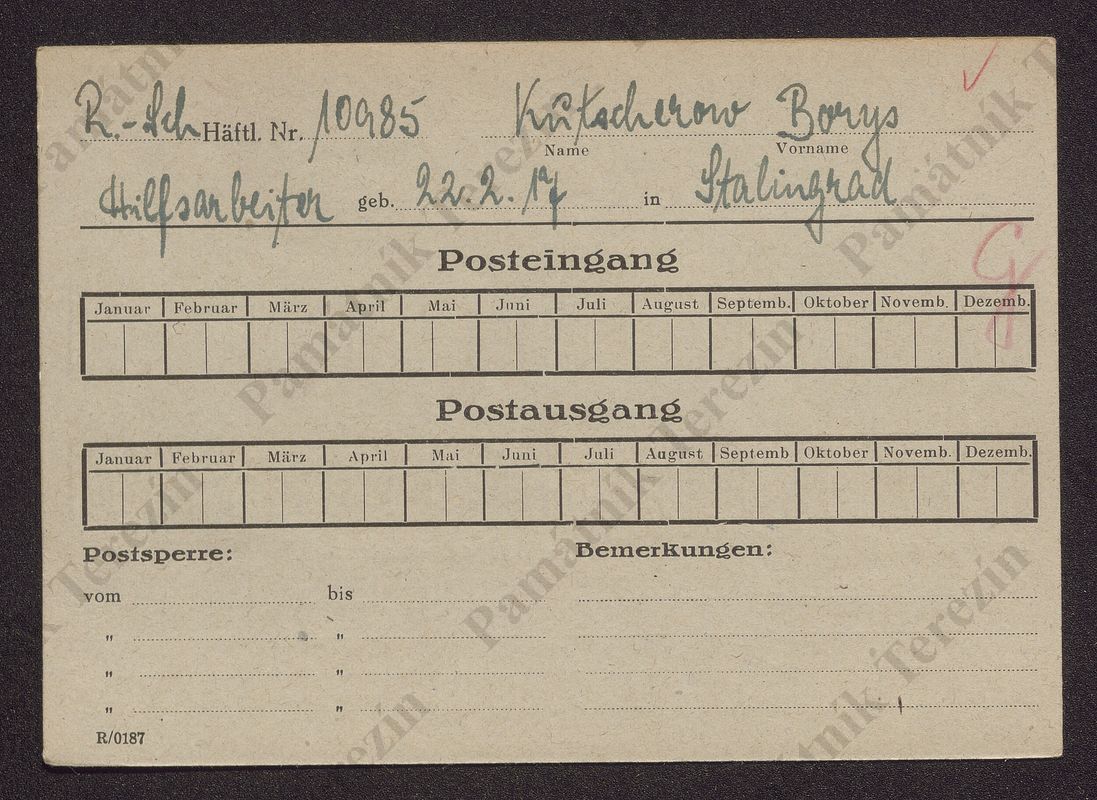 R.-Sch Häftl. Nr. 10985 Kutscherow Borys
Name Vorname
Hilfsarbeiter geb. 22.2.17 in Stalingrad
Posteingang
Januar Februar März April Mai Juni Juli August Septemb. Oktober Novemb. Dezemb.
Postausgang
Januar Februar März April Mai Juni Juli August Septemb Oktober Novemb. Dezemb.
Postsperre: Bemerkungen:
vom bis
" "
" "
" "
R/0187
Památník Terezín